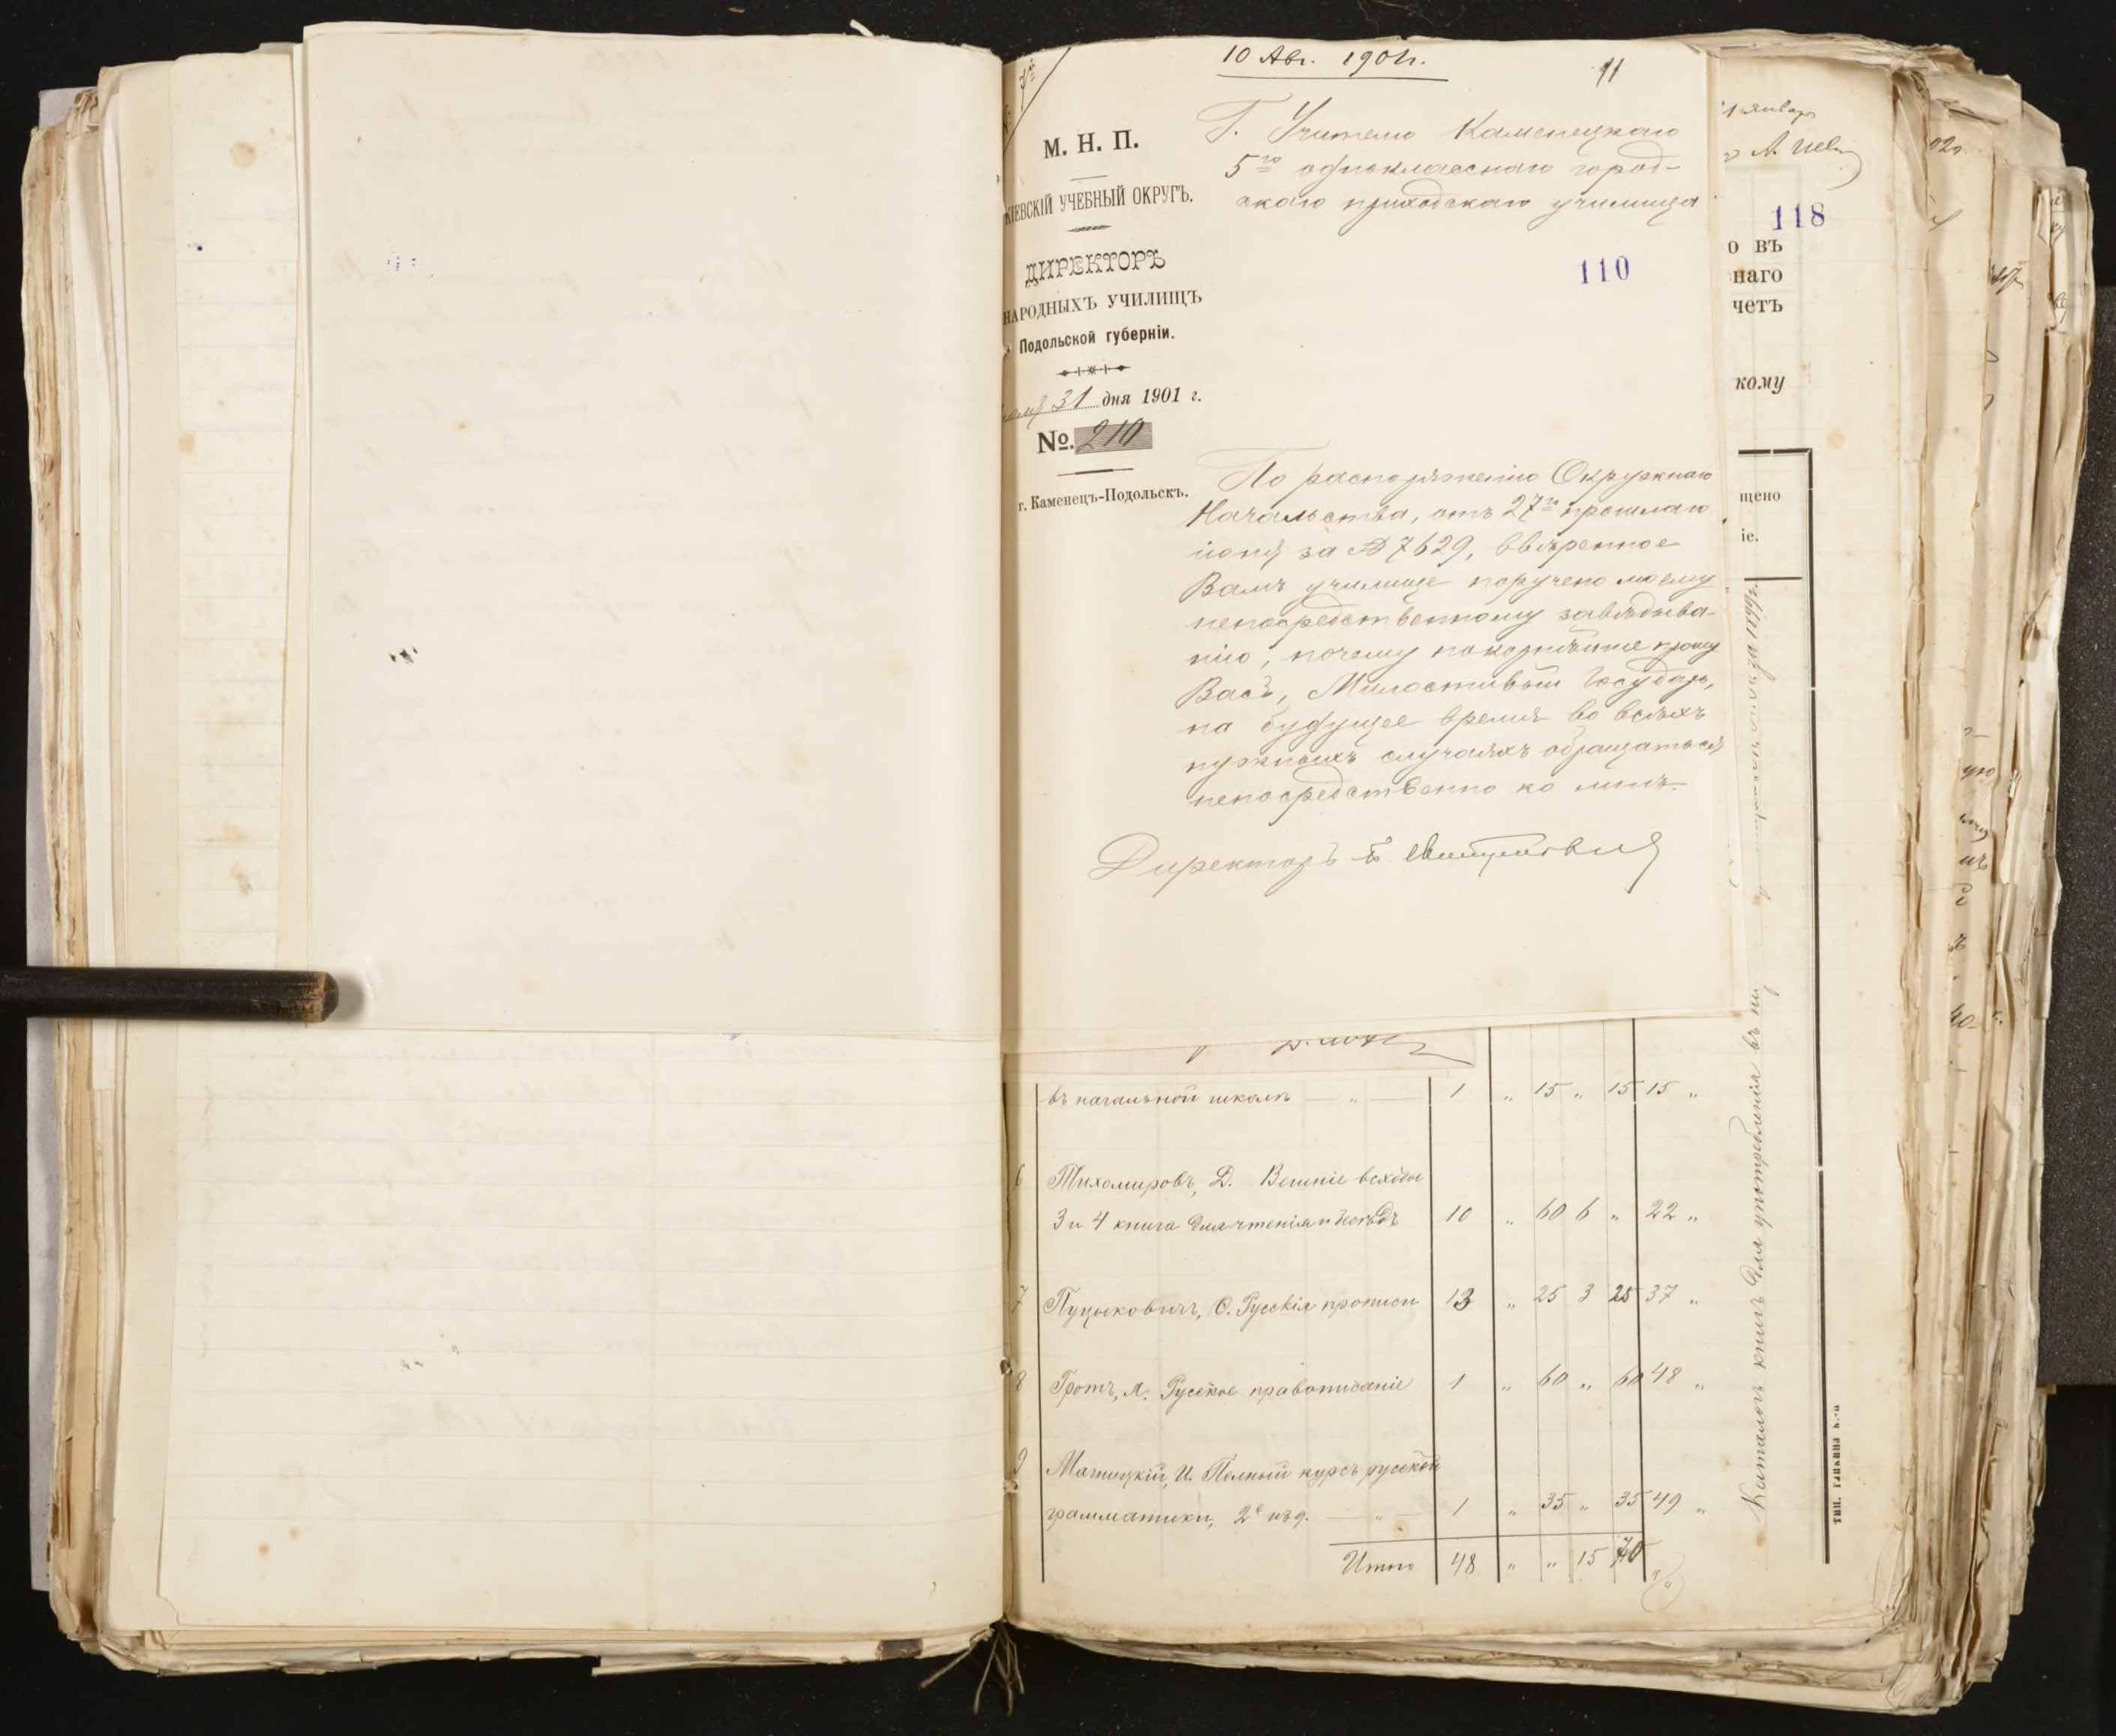 10 Авг. 1901 г.
11
М. Н. П.
КІЕВСКІЙ УЧЕБНЫЙ ОКРУГЪ.
ДИРЕКТОРЪ
НАРОДНЫХЪ УЧИЛИЩЪ
Подольской губерніи.
31 дня 1901 г.
№. 210
г. Каменецъ-Подольскъ.
Г. Учителю Каменецкаго
5го однокласснаго город-
скаго приходскаго училища
110
По распоряженію Окружнаго
Начальства, отъ 27го прошлаго
іюня за № 7629, ввѣренное
Вамъ училище поручено моему
непосредственному завѣдыва-
нію, почему покорнѣйше прошу
Васъ, Милостивый Государь,
на будущее время во всѣхъ
нужныхъ случаяхъ обращаться
непосредственно ко мнѣ.
Директоръ
118
о въ
наго
четъ
кому
щено
іе.
въ начальной школѣ — „ — 1 „ 15 „ 15 15 „
6 Тихомировъ, Д. Вешніе всходы
3 и 4 книга для чтенія и бесѣдъ 10 „ 60 6 „ 22 „
7 Пуцыковичъ, Ѳ. Русскія прописи 13 „ 25 3 25 37 „
8 Гротъ, Я. Русское правописаніе 1 „ 60 „ 60 48 „
9 Мачицкій, И. Полный курсъ русской
грамматики, 2е изд. — „ — 1 „ 35 „ 35 49 „
Итого 48 „ „ 15 70
Каталогъ книгъ для употребленія въ
за 1899 г.